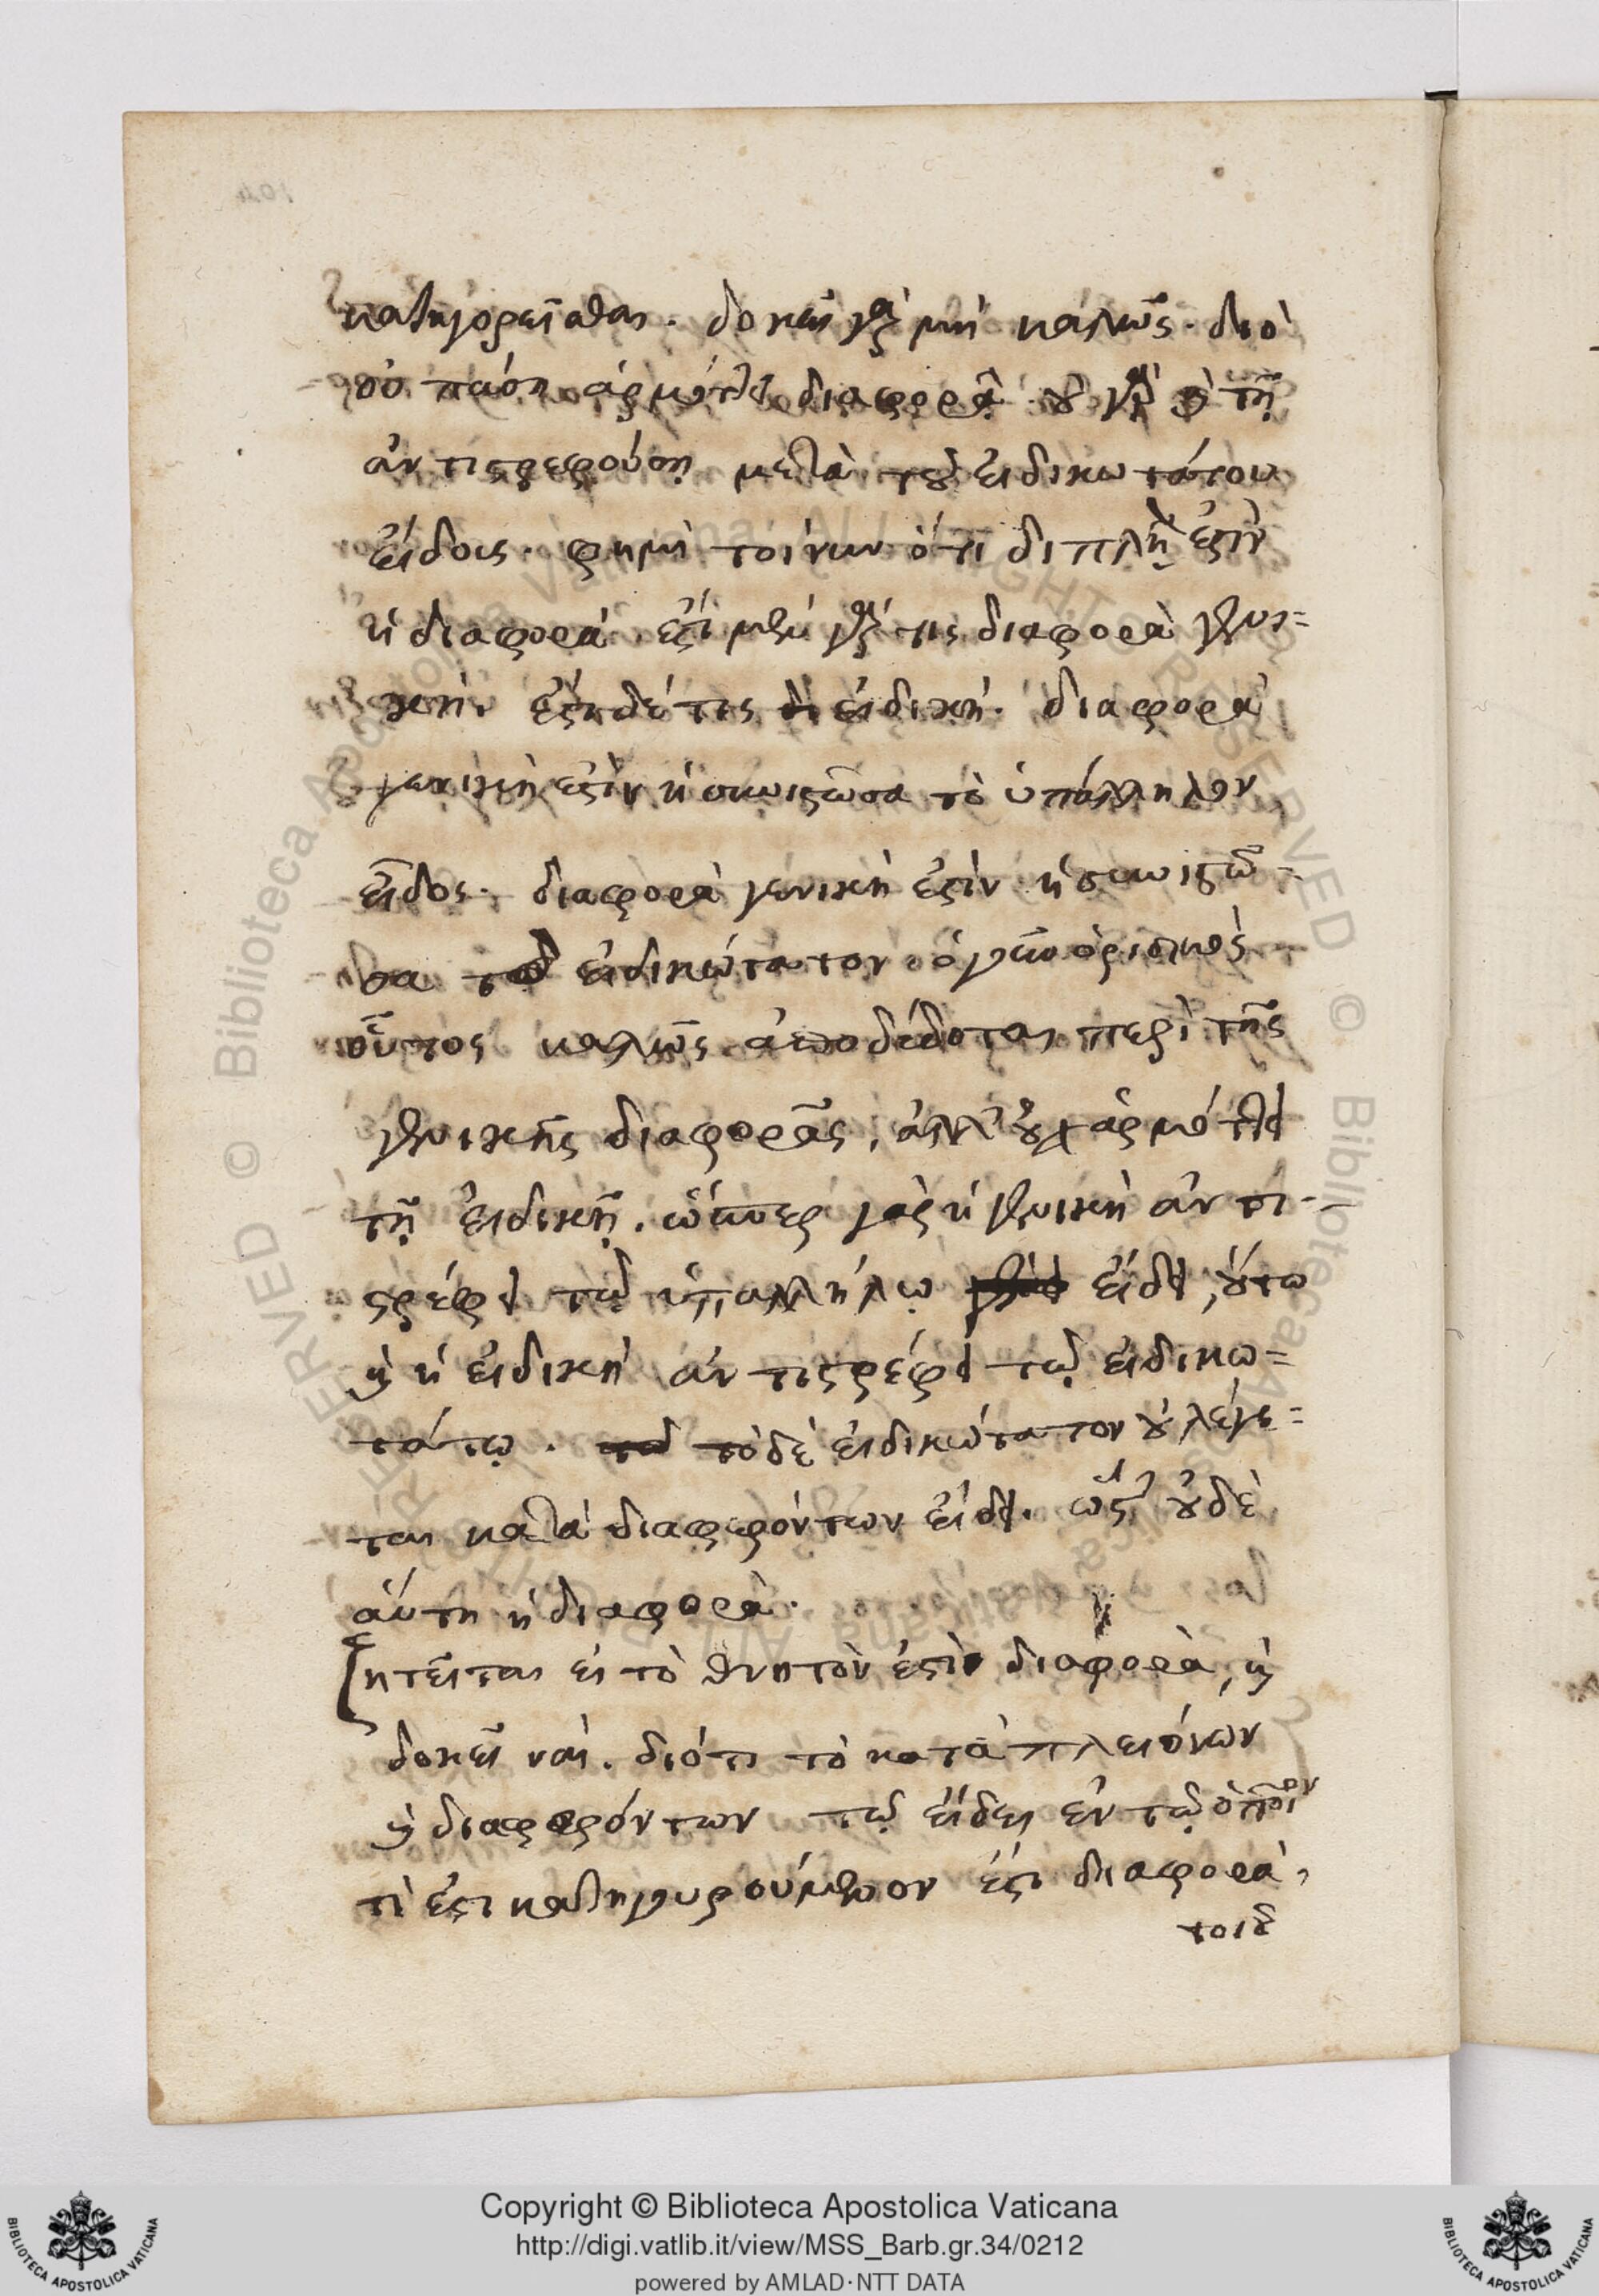 κατηγορεῖσθαι. δοκεῖ γὰρ μὴ καλῶς. διὸ
οὐ πάσῃ ἁρμόττει διαφορᾷ. οὐ γὰρ τῇ
ἀντιστρεφούσῃ μετὰ τοῦ εἰδικωτάτου
εἴδους. φημὶ τοίνυν ὅτι διπλῆ ἐστὶν
ἡ διαφορά. ἔστι μὲν γάρ τις διαφορὰ γενι=
κὴ. ἔστι δέ τις εἰδική. διαφορὰ
γενική ἐστιν ἡ συνιστῶσα τὸ ὑπάλληλον
εἶδος. διαφορὰ γενικὴ ἐστὶν ἡ συνιστῶ-
σα τὸ εἰδικώτατον. ὁ γοῦν ὁρισμὸς
οὗτος καλῶς ἀποδέδοται περὶ τῆς
γενικῆς διαφορᾶς, ἀλλ' οὐχ ἁρμόττει
τῇ εἰδικῇ. ὥσπερ γὰρ ἡ γενικὴ ἀντι-
στρέφει τῷ ὑπαλλήλῳ εἴδει, οὕτω
καὶ ἡ εἰδικὴ ἀντιστρέφει τῷ εἰδικω=
τάτῳ. τὸ δὲ εἰδικώτατον οὐ λέγε=
ται κατὰ διαφερόντων εἴδει. ὥστε οὐδὲ
αὐτὴ ἡ διαφορά.
ζητεῖται εἰ τὸ θνητὸν ἐστὶ διαφορὰ, καὶ
δοκεῖ ναί. διότι τὸ κατὰ πλειόνων
καὶ διαφερόντων τῷ εἴδει ἐν τῷ ὁποῖον
τί ἐστι κατηγορούμενον ἐστι διαφορά,
τοιοῦ
Copyright © Biblioteca Apostolica Vaticana
http://digi.vatlib.it/view/MSS_Barb.gr.34/0212
powered by AMLAD·NTT DATA